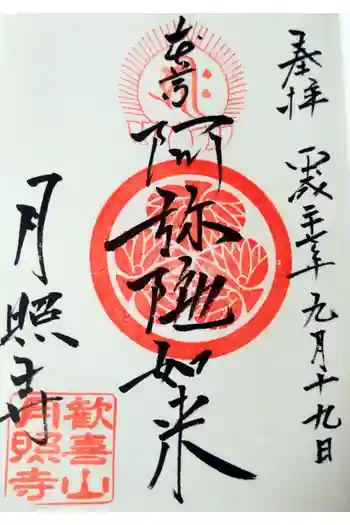 奉拝 平成二十年九月十九日
本尊
阿弥陀如来
月照寺
歡喜山
月照寺